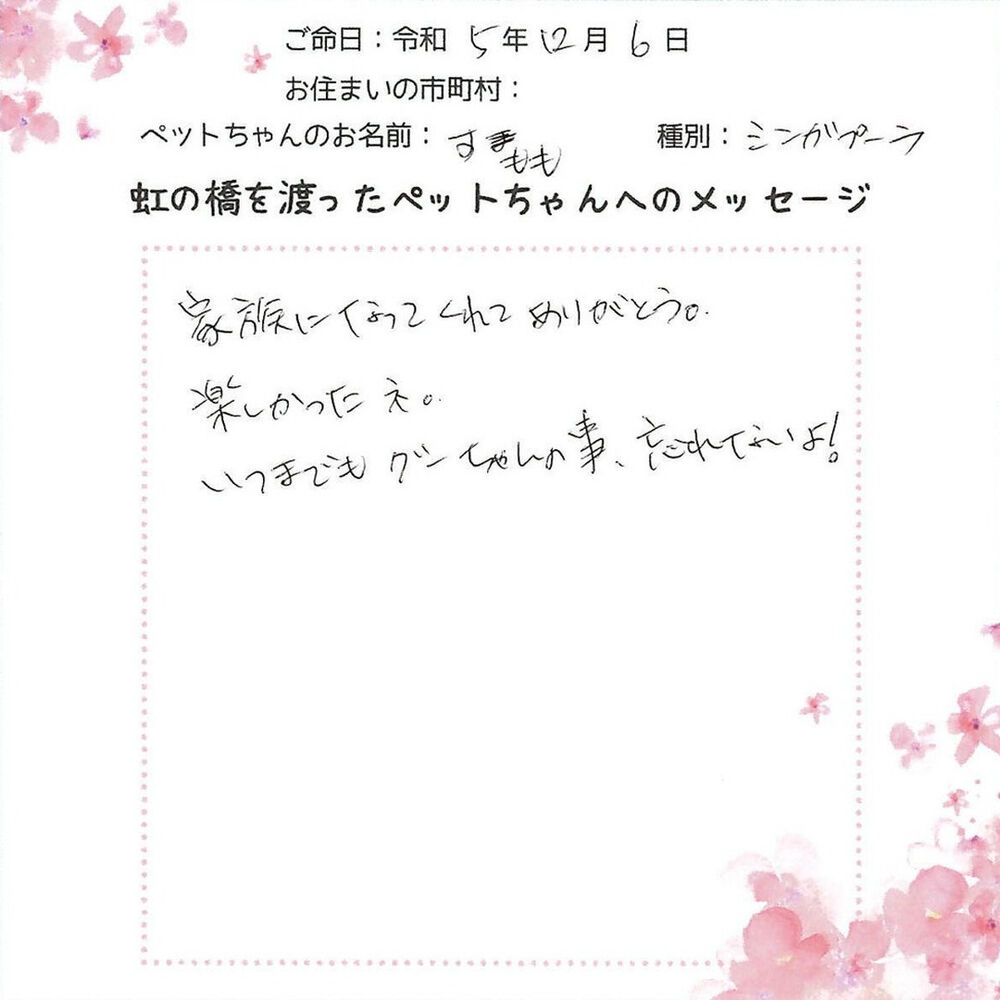 ご命日：令和 5年12月6日
お住まいの市町村：
ペットちゃんのお名前：すもも 種別：シンガプーラ
虹の橋を渡ったペットちゃんへのメッセージ
家族になってくれてありがとう。
楽しかったネ。
いつまでもグンちゃんの事、忘れてないよ!